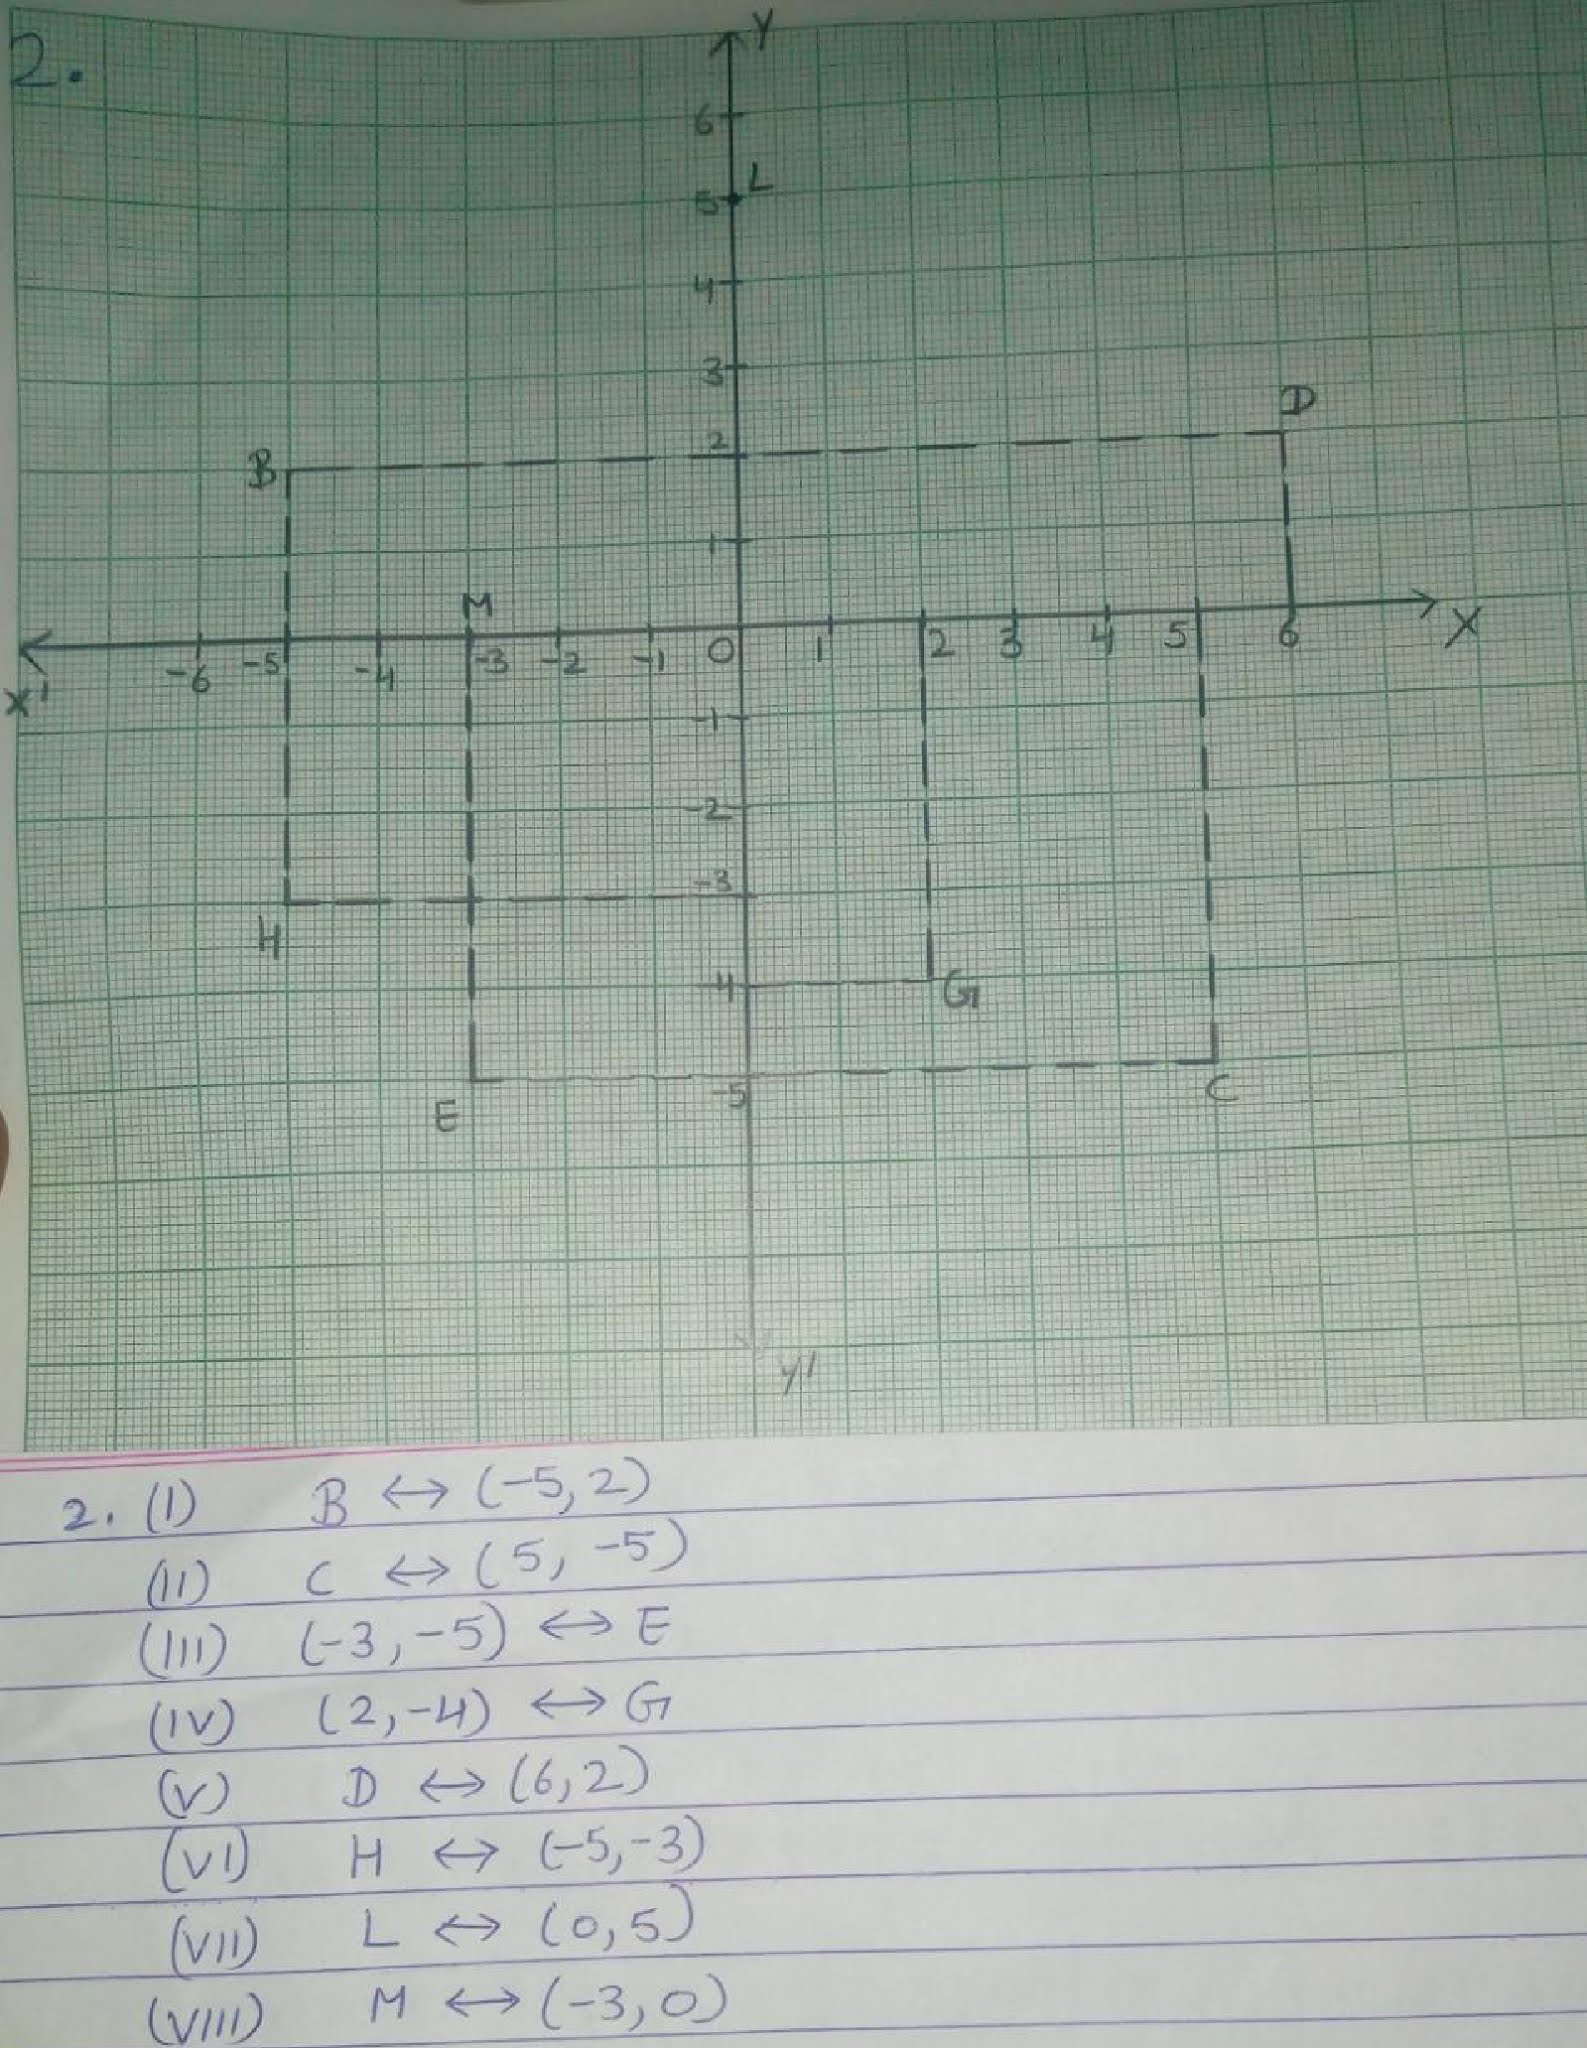 2.
Y
6
L
5
4
3
D
2
B
1
M
X' -6 -5 -4 -3 -2 -1 0 1 2 3 4 5 6 X
-1
-2
-3
H
-4 G
-5 C
E
Y'
2. (I) B ↔ (-5, 2)
(II) C ↔ (5, -5)
(III) (-3, -5) ↔ E
(IV) (2, -4) ↔ G
(V) D ↔ (6, 2)
(VI) H ↔ (-5, -3)
(VII) L ↔ (0, 5)
(VIII) M ↔ (-3, 0)